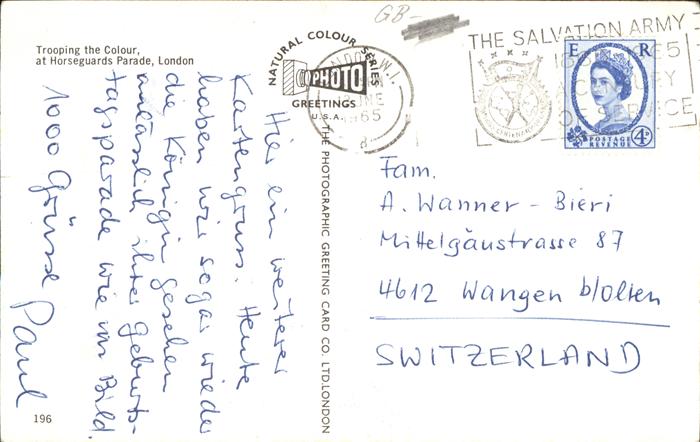 GB-
Trooping the Colour,
at Horseguards Parade, London
NATURAL COLOUR SERIES
PHOTO
GREETINGS
U.S.A.
THE PHOTOGRAPHIC GREETING CARD CO. LTD. LONDON
THE SALVATION ARMY
1965
E R
POSTAGE
REVENUE
4D
Hier ein weiterer
Kartengruss. Heute
haben wir sogar wieder
die Königin gesehen
anlässlich ihrer Geburts-
tagsparade wie im Bild.
1000 Grüsse Paul
Fam.
A. Wanner - Bieri
Mittelgäustrasse 87
4612 Wangen b/Olten
SWITZERLAND
196